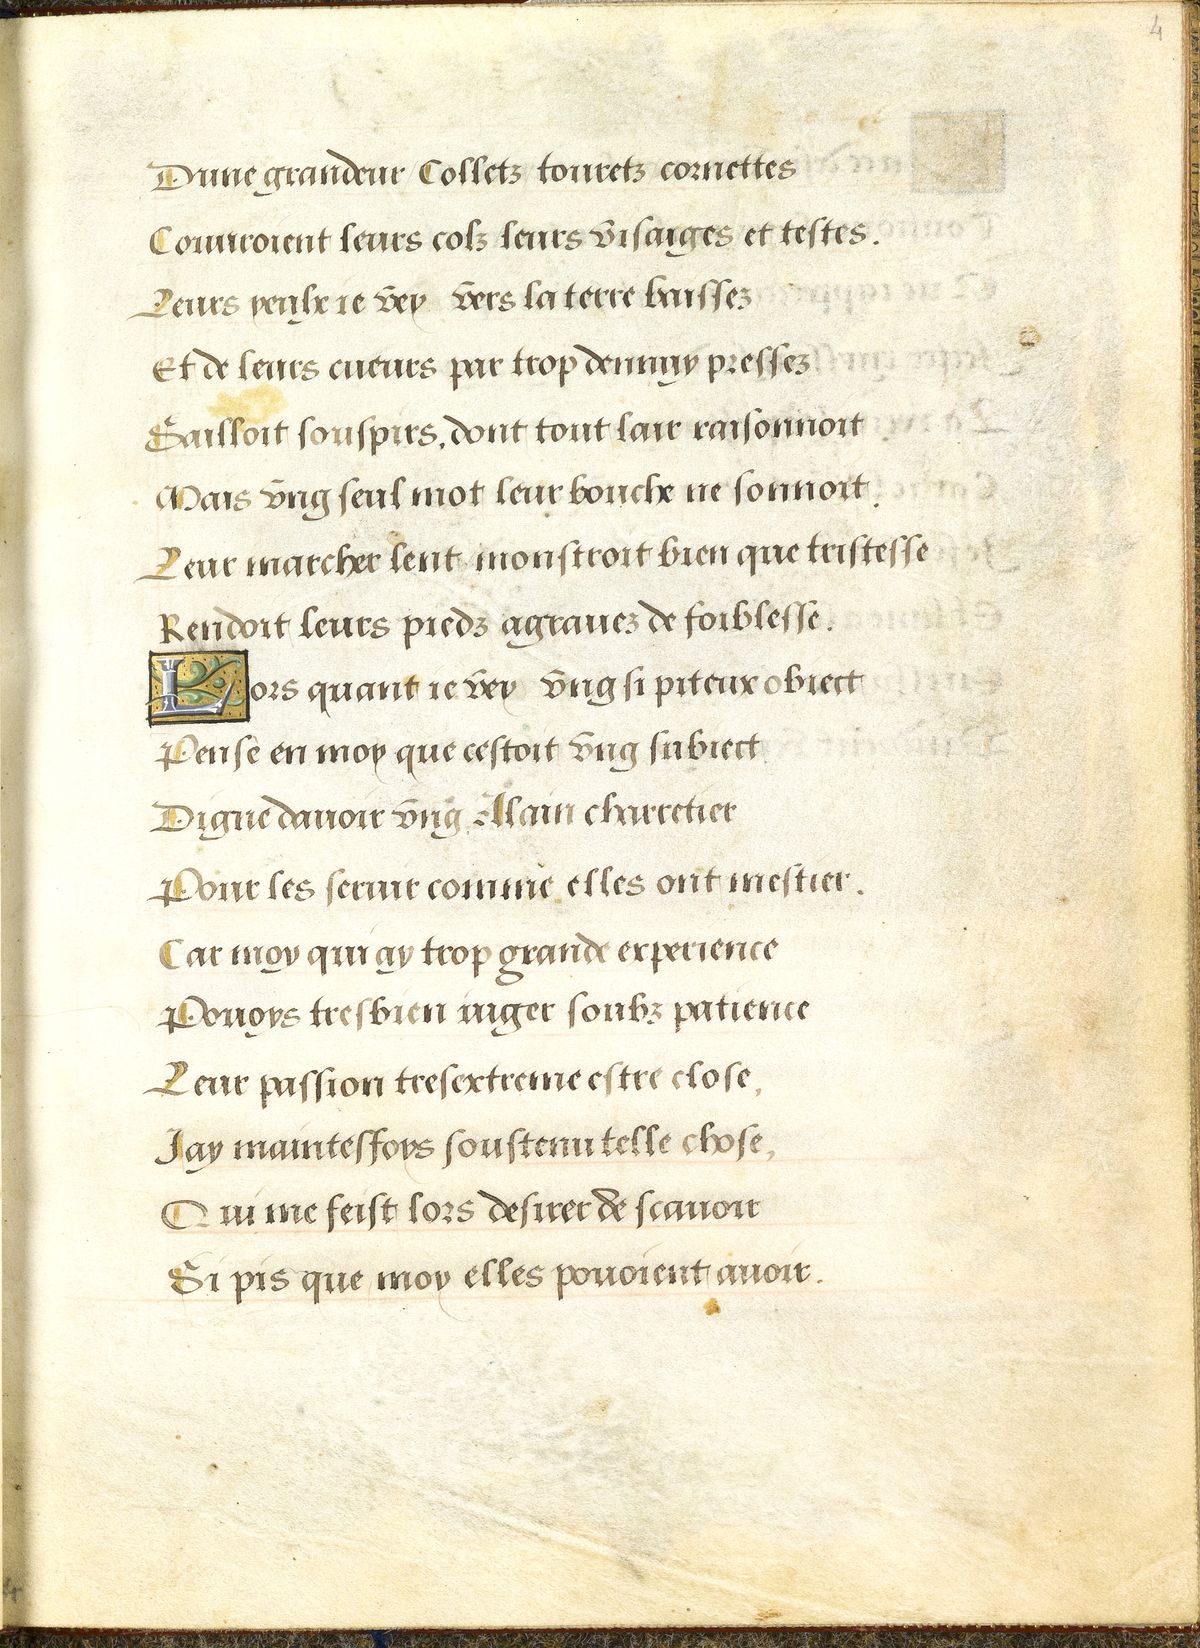 4
Dune grandeur Colletz touretz cornettes
Couuroient leurs colz leurs visaiges et testes.
Leurs yeulx ie vey vers la terre baissez
Et de leurs cueurs par trop dennuy pressez
Sailloit souspirs, dont tout lair raisonnoit
Mais vng seul mot leur bouche ne sonnoit.
Leur marcher lent monstroit bien que tristesse
Rendoit leurs piedz agrauez de foiblesse.
Lors quant ie vey vng si piteux obiect
Pense en moy que cestoit vng subiect
Digne dauoir vng Alain charretier
Pour les seruir comme elles ont mestier.
Car moy qui ay trop grande experience
Pouoys tresbien iuger soubz patience
Leur passion tresextreme estre close,
Jay maintesfoys soustenu telle chose,
Qui me feist lors desirer de scauoir
Si pis que moy elles pouoient auoir.